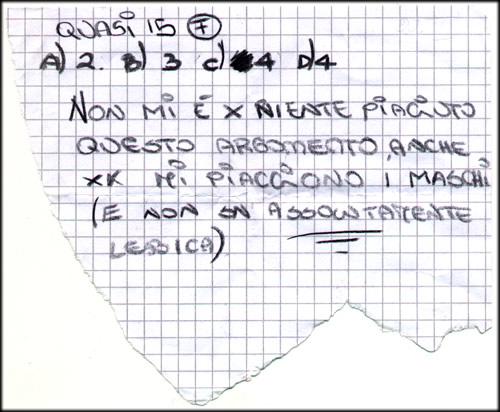 QUASI 15 F
A) 2. B) 3 C) 4 D) 4
NON MI É X NIENTE PIACIUTO
QUESTO ARGOMENTO, ANCHE
XK MI PIACCIONO I MASCHI
(E NON SN ASSOLUTAMENTE
LESBICA)